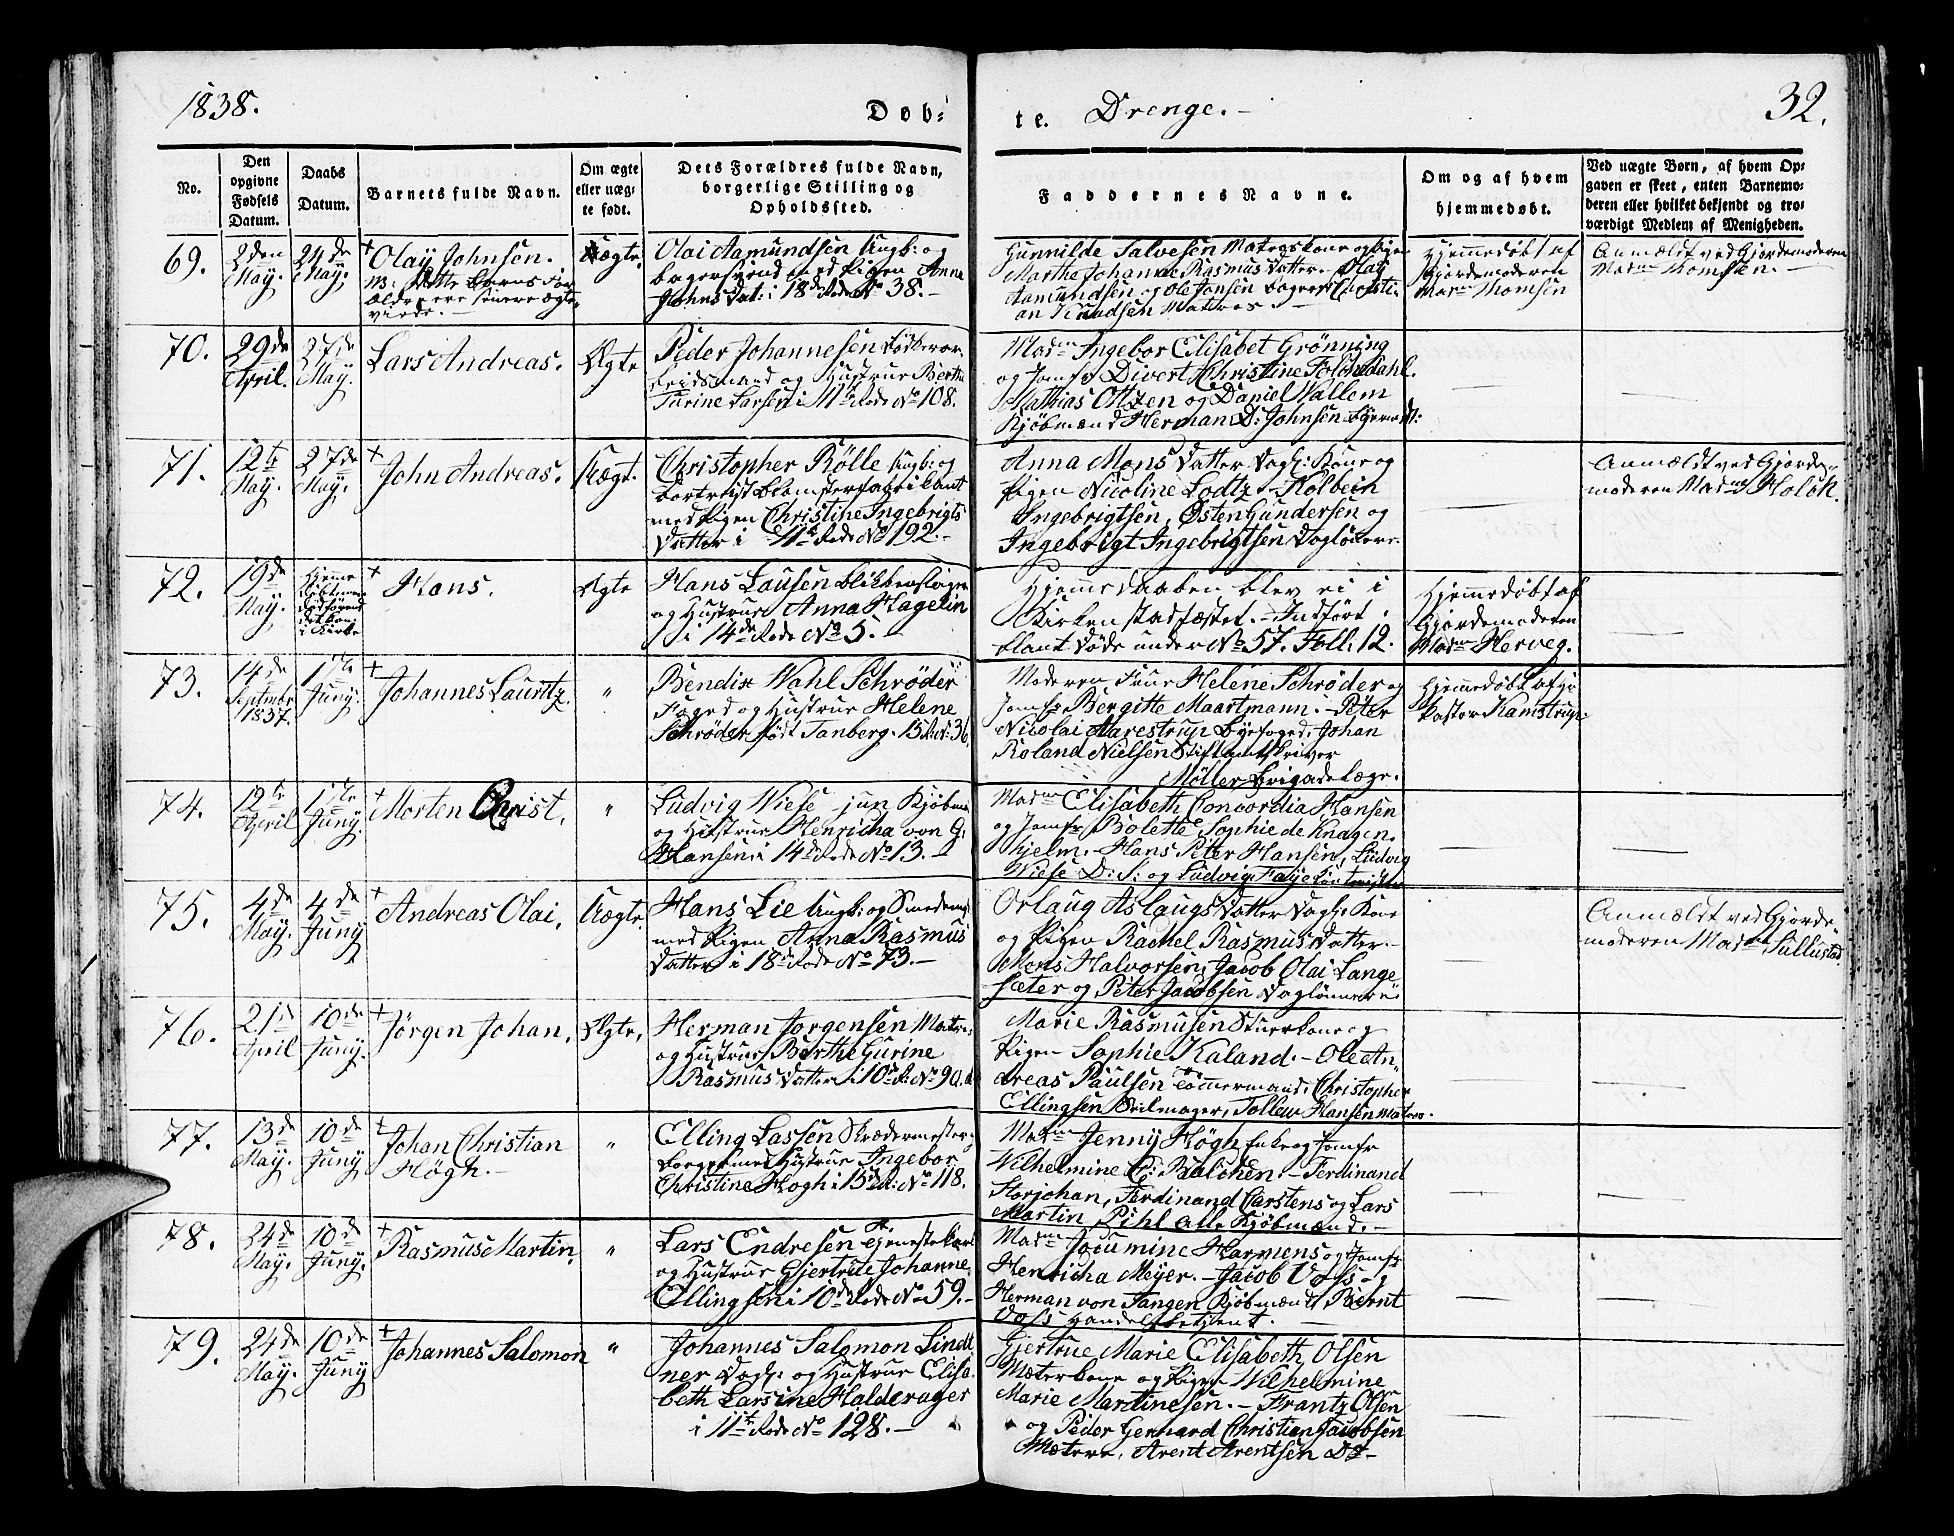 1838.
Døb-
te. Drenge.-
32.
No.
Den opgivne Fødsels Datum.
Daabs Datum.
Barnets fulde Navn.
Om ægte eller uægte født.
Dets Forældres fulde Navn, borgerlige Stilling og Opholdssted.
Faddernes Navne.
Om og af hvem hjemmedøbt.
Ved uægte Børn, af hvem Opgaven er skeet, enten Barnemoderen eller hvilket bekjendt og troværdigt Medlem af Menigheden.
69.
2den May.
24de May.
Olay Johnsen.
Uægte.
Olai Aamundsen Ungk: og
bagersvend med Pigen Anne
Johns Dat: i 18de Rode No 38.-
Gunnilde Salvesen Matroskone og Pigen
Marthe Johanne Rasmus Datter. Olay
Aamundsen og Ole Jonsen bagere Christi-
an Knudsen Matros.-
Hjemmedøbt af
Gjordemoderen
Madme Thomsen
Anmældt ved Gjordemoderen
Madme Thomsen.-
70.
29de April.
27de May.
Lars Andreas.
Ægte
Peder Johannesen
og Hustrue Berthe
Turine Larsen i 11te Rode No 108.
Madme Ingebor Elisabet Grønning
og Jomfr Divert Christine
Mathias Ottzen og Daniel Wallem
Kjøbmænd Herman D: Johnsen
71.
12te May.
27de May.
John Andreas.
Uægt.
Christopher Rölle Ungk: og
Blomsterfabrikant
med Pigen Christine Ingebrigts
Datter i 11te Rode No 192.-
Anna Mons Datter Dagl: Kone og
Pigen Nicoline Lodtz.- Kolbein
Ingebrigtsen, Østen Gundersen og
Ingebrigt Ingebrigtsen Dagløbere-
Anmældt ved Gjorde-
moderen Madme Holck.
72.
19de May.
Hjemme
Hans.
Ægte
Hans Lausen blikkenslager
og Hustrue Anna Hagelin
i 14de Rode No 5.-
Hjemmedaaben blev ei i
Kirken stadfæstet.- Indført
blant døde under No 57. Foll: 12.
Hjemmedøbt af
Gjordemoderen
Madme Herweg.
73.
14de Septmbr 1837.
1ste Juny.
Johannes Lauritz.
"
Bendix Wahl Schrøder
Foged og Hustrue Helene
Schrøder født Tanberg. 15 R: No 36.
Moderen Frue Helene Schrøder og
Jomfr Bergitte Maartmann.- Peter
Nicolai Harestrup Byfoged, Johan
Roland Nielsen Stiftamtskriver
Møller Brigadelæge.
Hjemmedøbt af
Pastor Kamstrup.
74.
12te April
1ste Juny.
Morten Christ.
"
Ludvig Wiese jun Kjøbm
og Hustrue Henricha von G:
Hansen i 14de Rode No 13.-
Madme Elisabeth Concordia Hansen
og Jomfr Bolette Sophie de Knagen-
hjelm.- Hans Petter Hansen, Ludvig
Wiese D: S: og Ludvig Faye
75.
4de May.
4de Juny
Andreas Olai.
Uægte
Hans Lie Ungk: og Smedem
med Pigen Anna Rasmus
Datter i 18de Rode No 73.-
Orlaug Aslaugs Datter Dagl: Kone
og Pigen Rachel Rasmus Datter.-
Mons Halvorsen, Jacob Olai Lange
sæter og Peter Jacobsen Daglønnere
Anmældt ved Gjorde-
moderen Madme Sullustad.
76.
21de April
10de Juny.
Jörgen Johan.
Ægte.
Herman Jorgensen Matr:
og Hustrue Berthe Gurine
Rasmus Datter i 10de R: No 90.
Marie Rasmusen Stuerkone og
Pigen Sophie Kaland.- Ole An-
dreas Paulsen Tømmermand, Christopher
Ellingsen Seilmager, Tollew Hansen Matros.
77.
13de May.
10de Juny
Johan Christian
Högh.-
"
Elling Lassen Skrædermester,
borger med Hustrue Ingebor
Christine Hogh i 15de R: No 118.
Madme Jenny Högh Enke og Jomfr
Wilhelmine C: Balchen.- Ferdinand
Storjohan, Ferdinand Carstens og Lars
Martin Pihl alle Kjøbmænd.-
78.
24de May.
10de Juny.
Rasmus Martin.
"
Lars Endresen Tjenestekarl
og Hustrue Gjertrue Johanne
Ellingsen i 10de Rode No 59.-
Madme Harmens og Jomfr
Henricha Meyer.- Jacob Voss og
Herman von Tangen Kjøbmænd Bernt
Voss Handelsbetjent.
79.
24de May.
10de Juny
Johannes Salomon
"
Johannes Salomon Lindt
ner Dagl: og Hustrue Elisa-
beth Larsine Halderager
i 11te Rode No 128.-
Gjertrue Marie Elisabeth Olsen
Mæterkone og Pigen Wilhelmine
Marie Martinesen.- Frantz Olsen
og Peder Gerhard Christian Jacobsen
Mætere, Arent Arentsen Do-